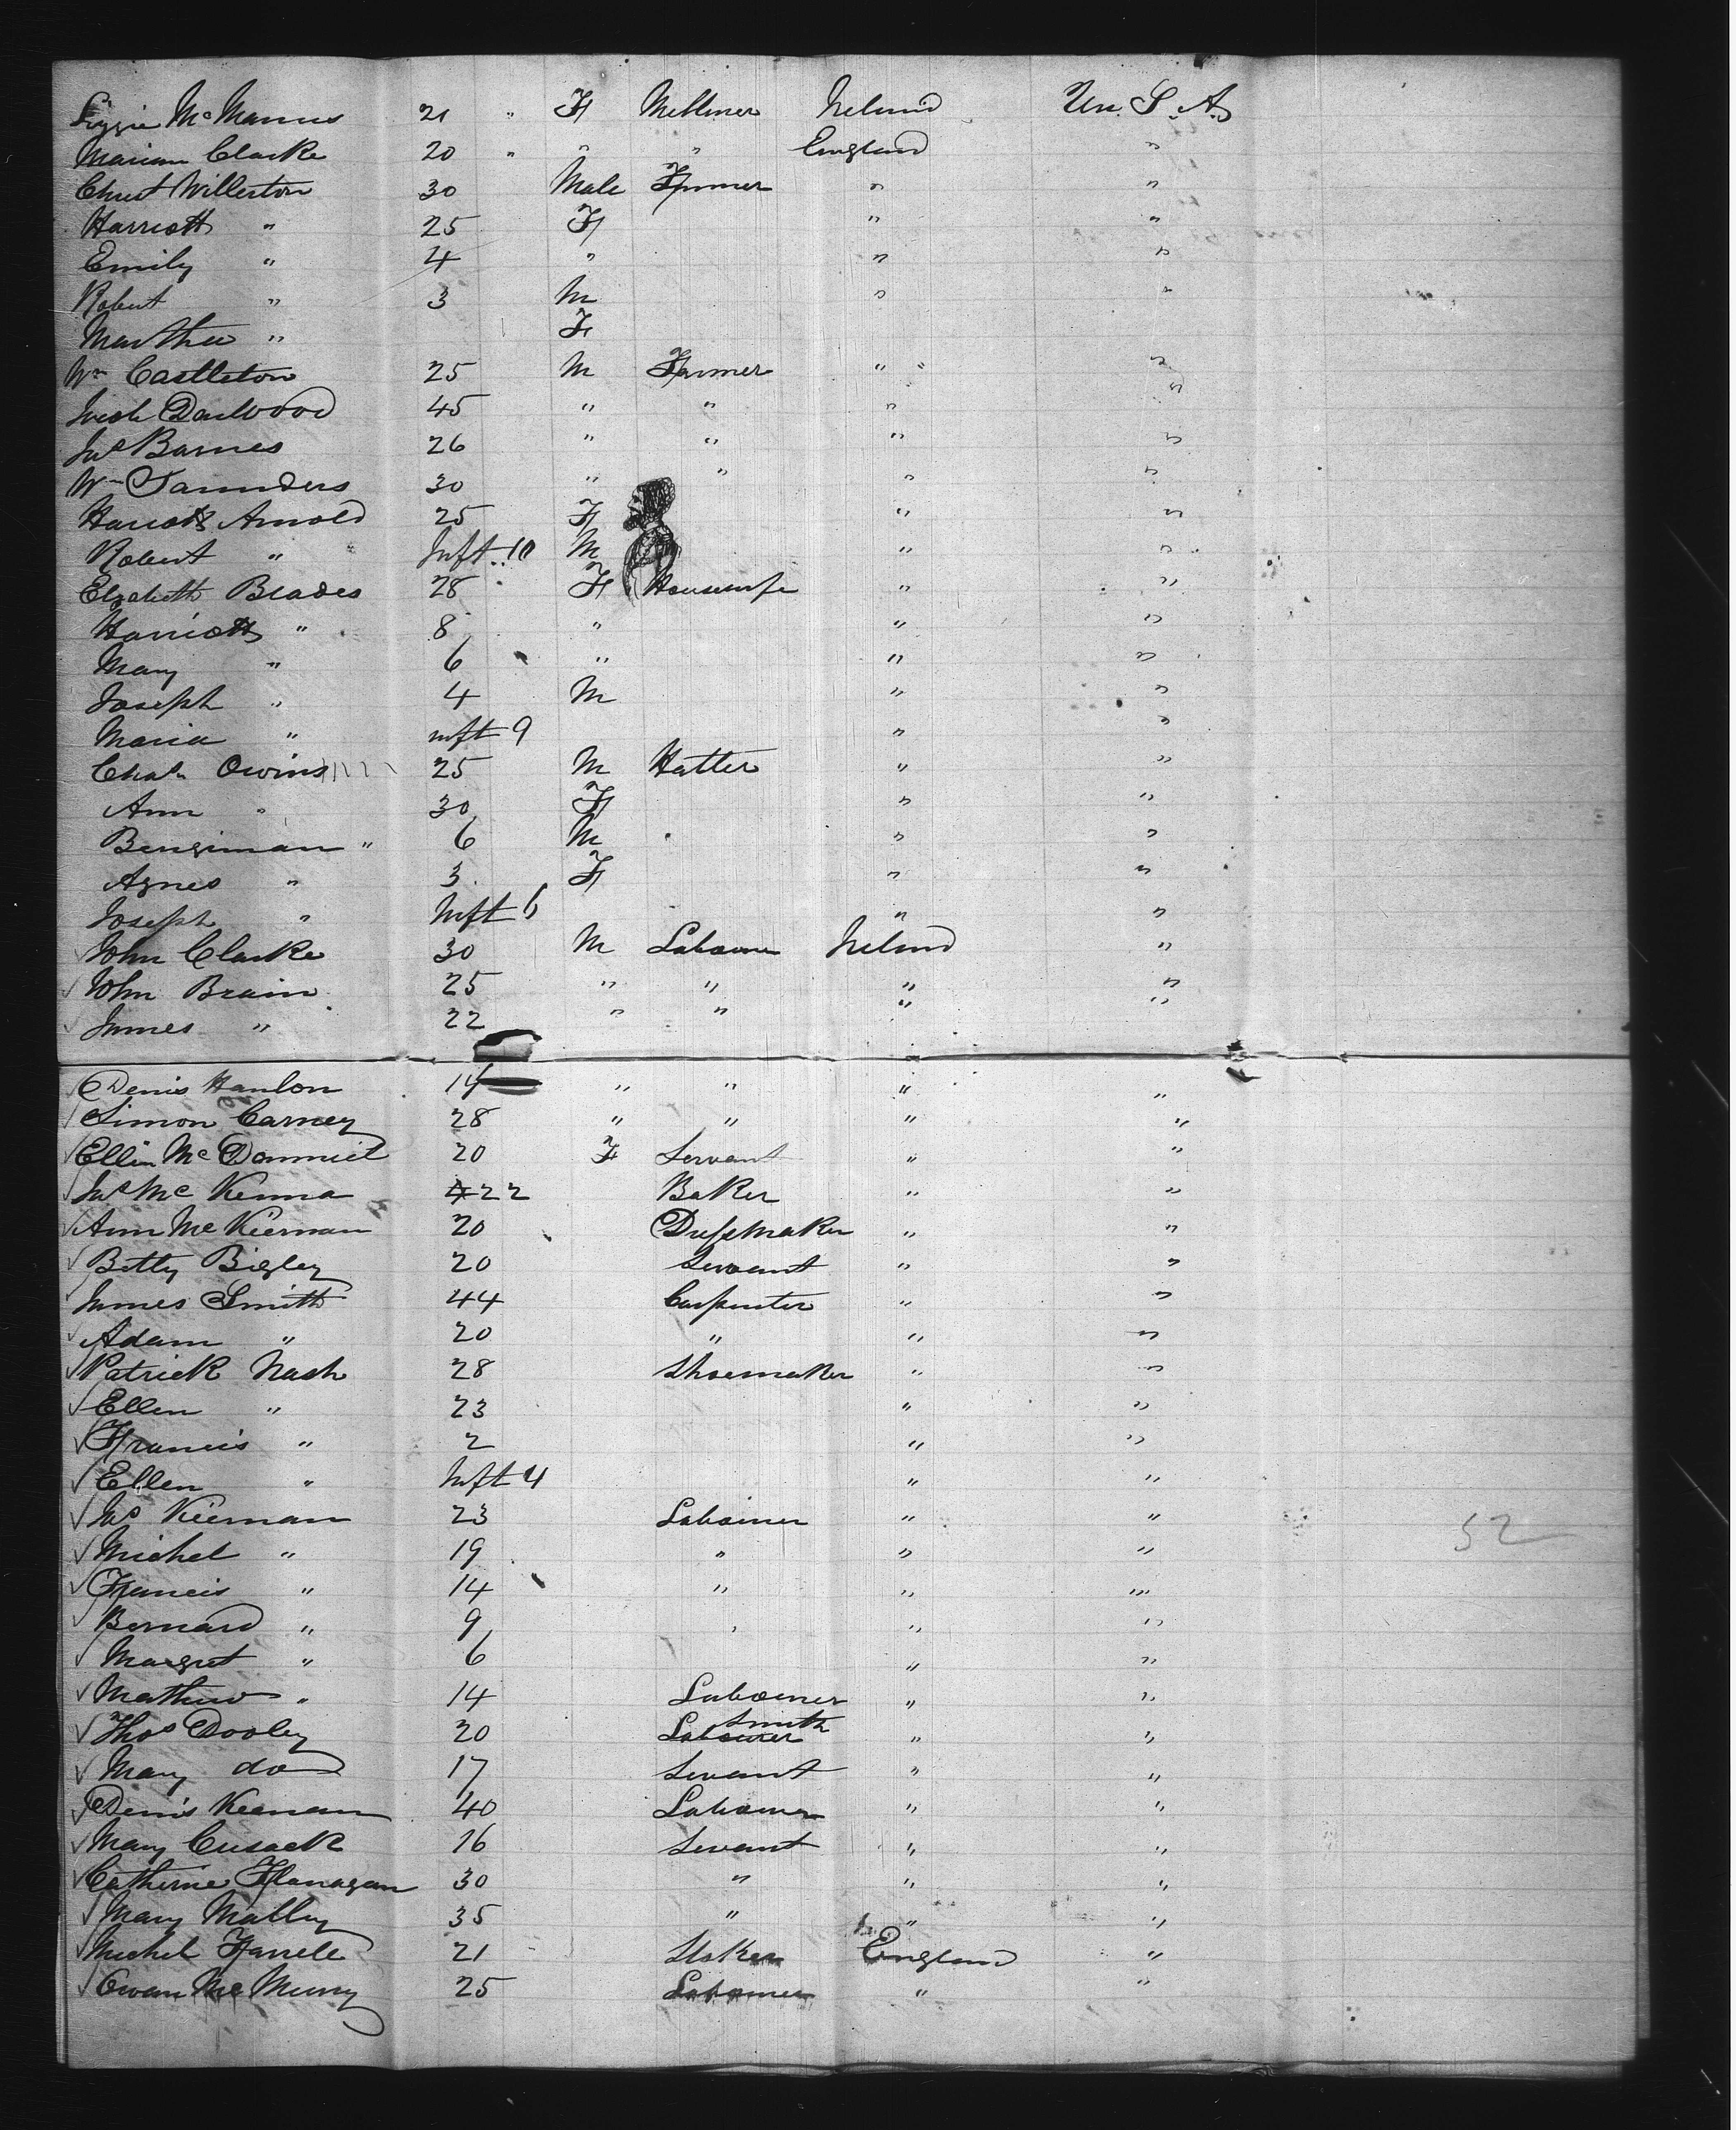 Lizzie McManus 21 " F Milliner Ireland Un. S. A.
Marian Clarke 20 " " " England "
Christ Willerton 30 Male Farmer " "
Harriott " 25 F " "
Emily " 4 " " "
Robert " 3 M " "
Martha " F
Wm Castleton 25 M Farmer " " "
45 " " " "
Jas Barnes 26 " " " "
Wm Saunders 30 " " " "
Harriott Arnold 25 F " "
Robert " Inft. 10 M " "
Elizabeth Blades 28 F Housewife " "
Harriott " 8 " " "
Mary " 6 " " "
Joseph " 4 M " "
Maria " inft 9 " "
Chas Owins 25 M Hatter " "
Ann " 30 F " "
Bengiman " 6 M " "
Agnes " 3 F " "
Joseph " Inft 6 " "
John Clarke 30 M Labourer Ireland "
John Brain 25 " " " "
James " 22 " " " "
Denis Hanlon 14 " " " "
Simon Carney 28 " " " "
Ellin McDanniel 20 F Servant " "
Jas McKenna 22 Baker " "
Ann McKiernan 20 Dressmaker " "
Betty Bigley 20 Servant " "
James Smith 44 Carpenter " "
Adam " 20 " " "
Patrick Nash 28 Shoemaker " "
Ellen " 23 " "
Francis " 2 " "
Ellen " Inft 4 " "
Jas Kiernan 23 Labourer " " 52
Michel " 19 " " "
Francis " 14 " " "
Bernard " 9 " " "
Margret " 6 " "
Mathew " 14 Labourer " "
Smith
Thos Dooley 20 Labourer " "
Mary do 17 Servant " "
Denis Keenan 40 Labourer " "
Mary Cusack 16 Servant " "
Catherine Flanagan 30 " " "
Mary Malley 35 " " "
Michel Farrell 21 Stoker England "
Owan McMurry 25 Labourer " "